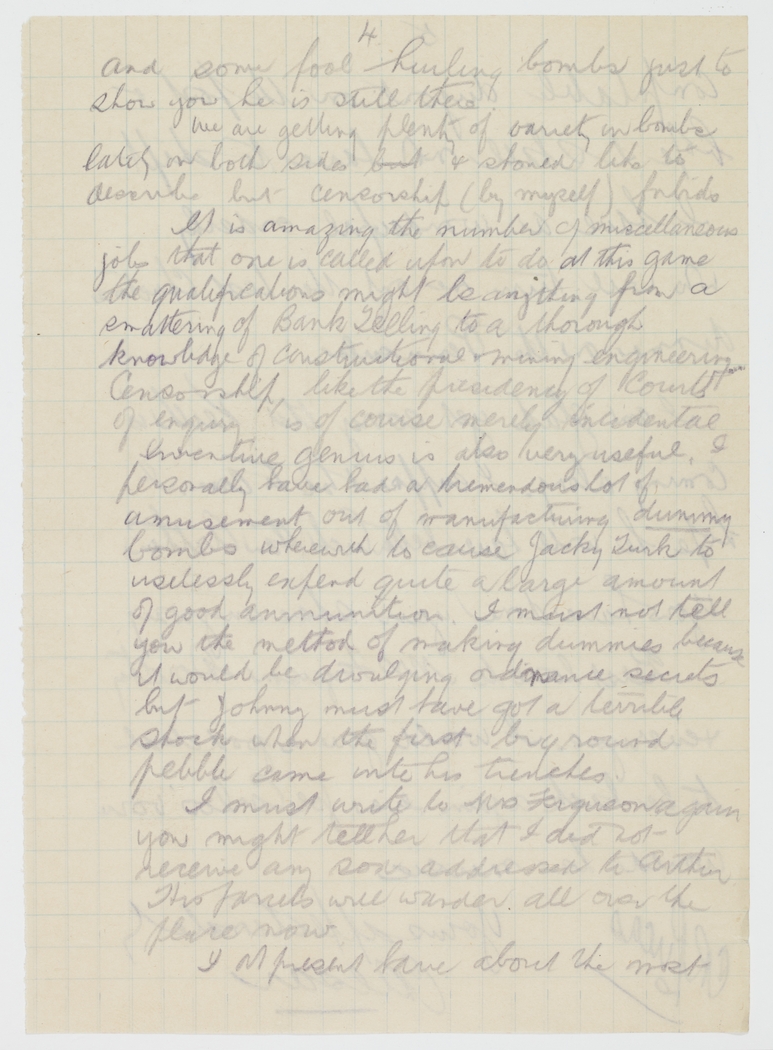 4
and some fool hurling bombs just to
show you he is still there.
We are getting plenty of variety in bombs
lately on both sides but & should like to
describe but censorship (by myself) forbids
It is amazing the number of miscellaneous
jobs that one is called upon to do at this game
the qualifications might be anything from a
smattering of Bank Telling to a thorough
knowledge of constructional & mining engineering
Censorship, like the presidency of Courts
of enquiry is of course merely incidental
inventive genius is also very useful. I
personally have had a tremendous lot of
amusement out of manufacturing dummy
bombs wherewith to cause Jacky Turk to
uselessly expend quite a large amount
of good ammunition. I must not tell
you the method of making dummies because
it would be divulging ordnance secrets
but Johnny must have got a terrible
shock when the first big round
pebble came into his trenches.
I must write to Mrs Ferguson again
you might tell her that I did not
receive any addressed to Arthur
His parcels will wander all over the
place now.
I at present have about the most